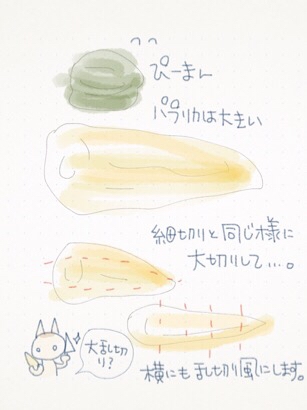 ぴーまん
パプリカは大きい
細切りと同じ様に
大切りして…。
大乱切り?
横にも乱切り風にします。